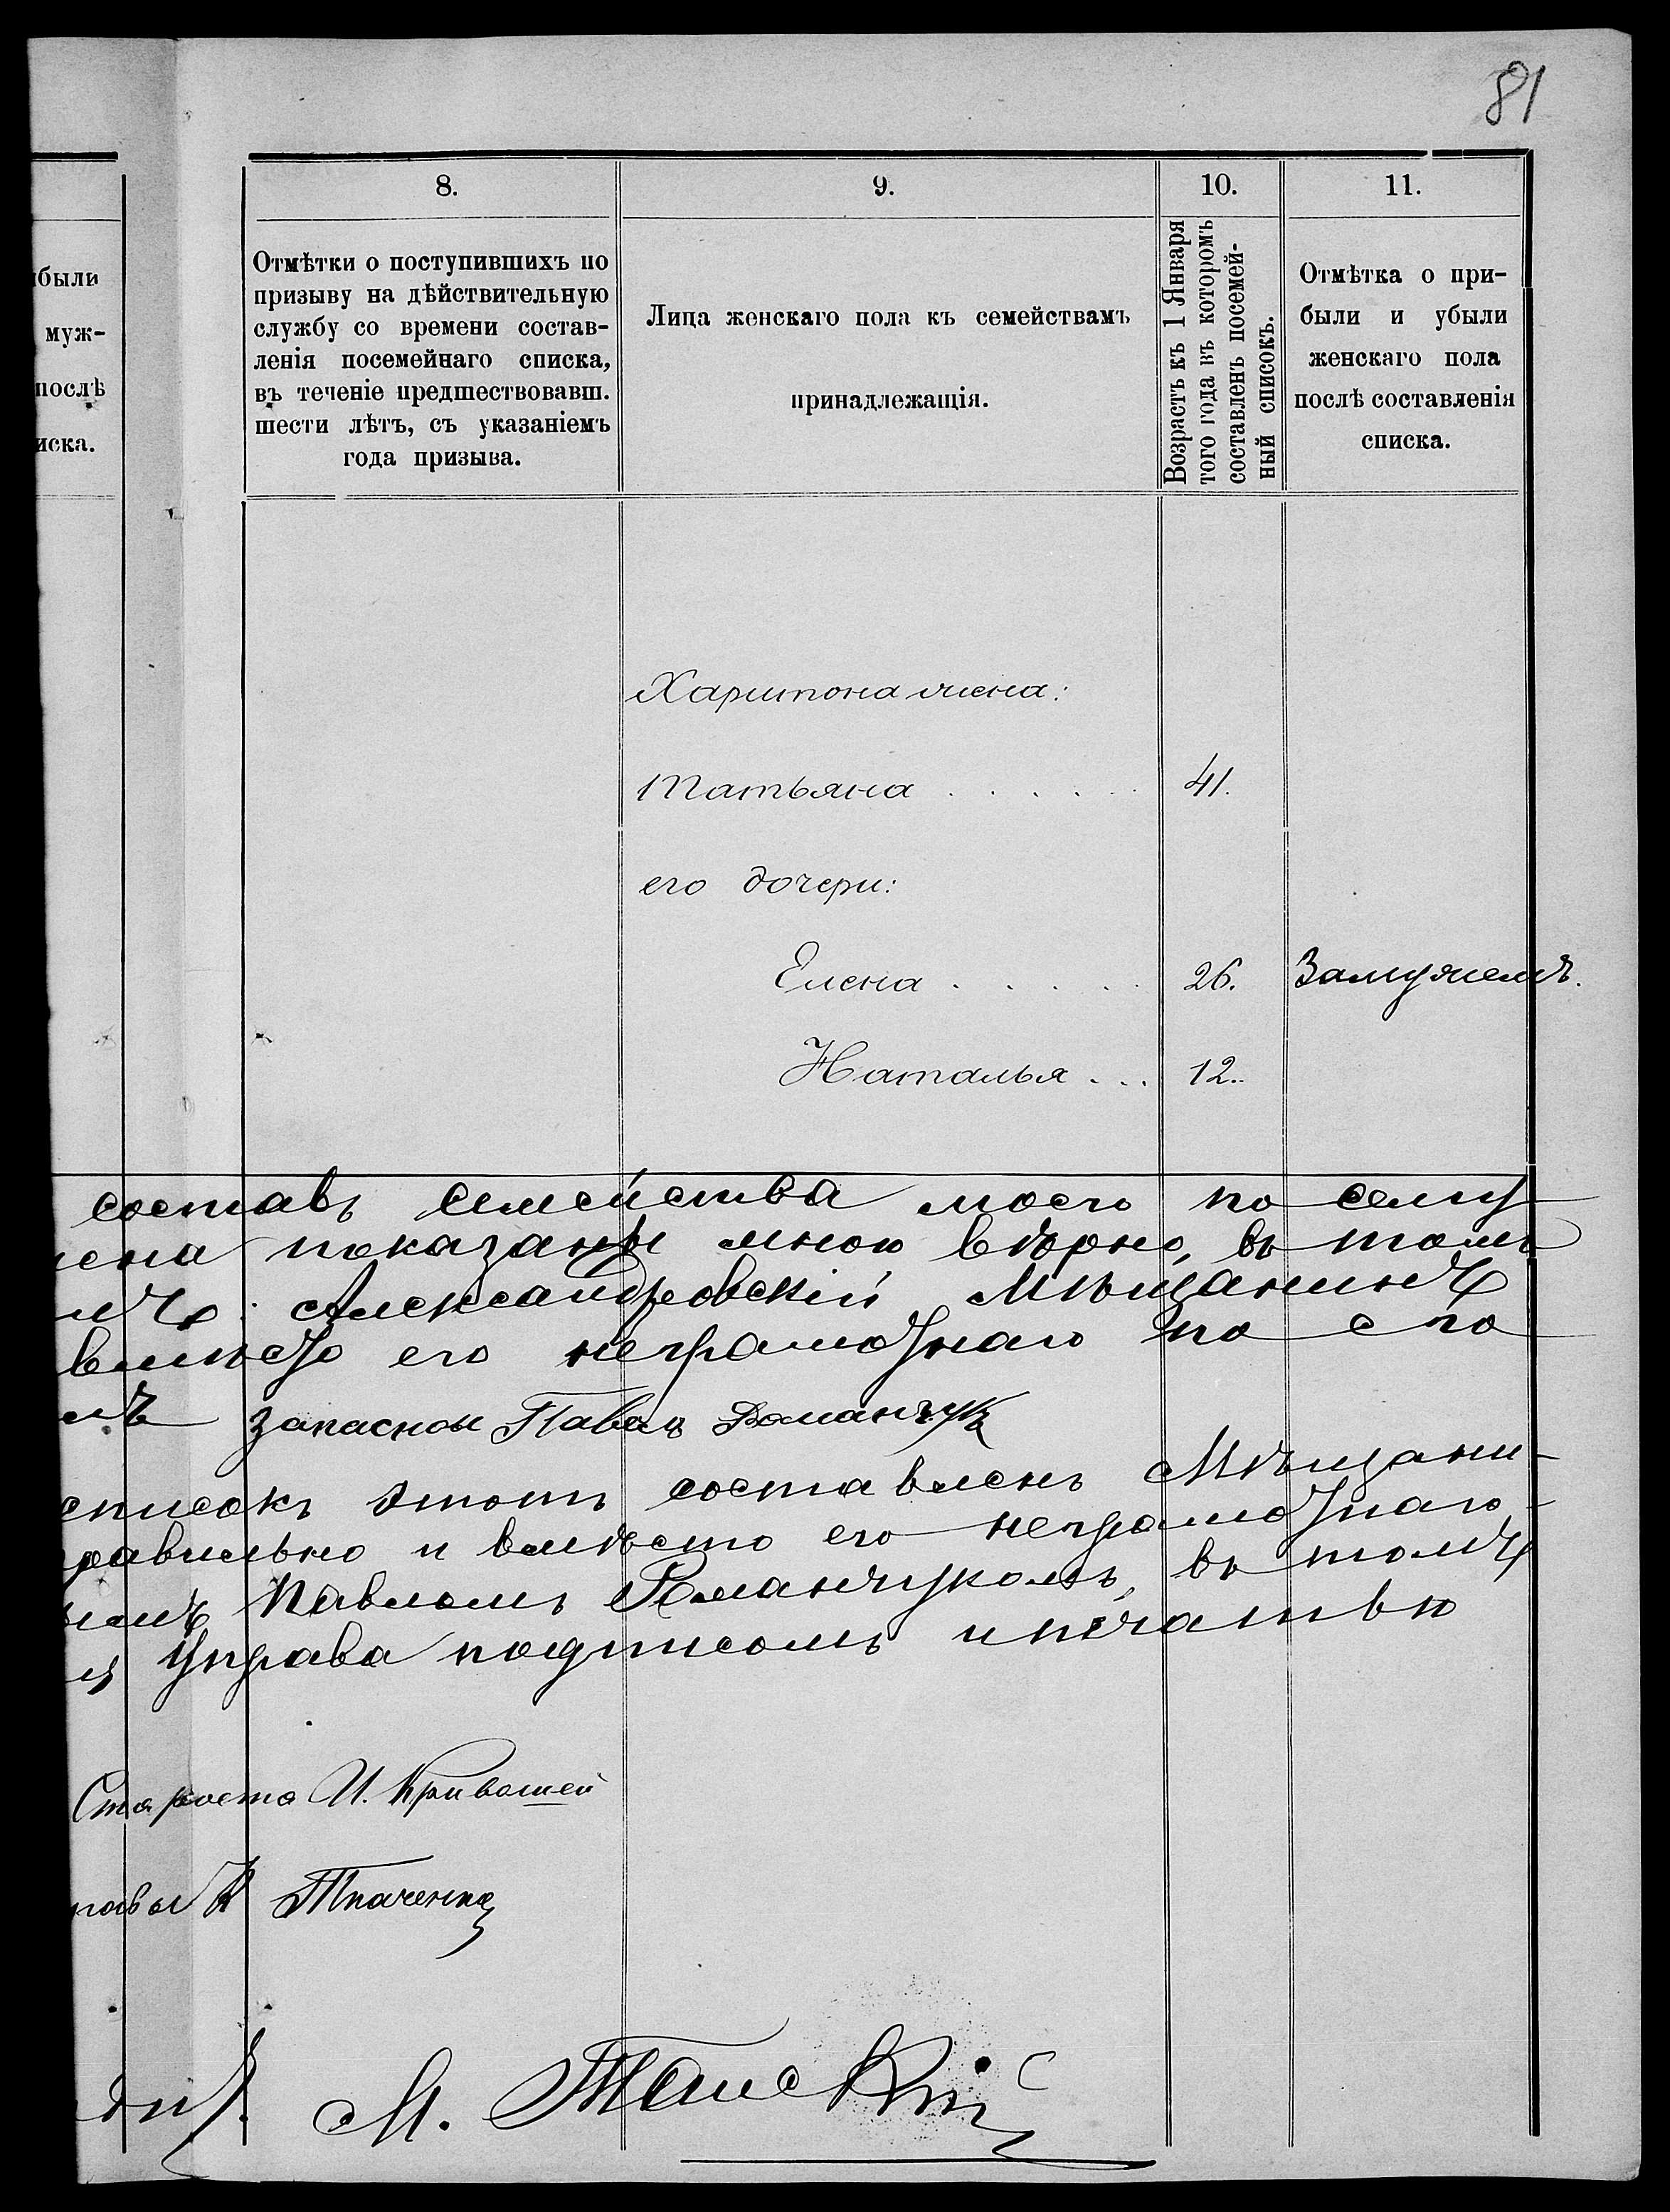 81
были
муж-
послѣ
иска.
8.
Отмѣтки о поступившихъ по
призыву на дѣйствительную
службу со времени состав-
ленія посемейнаго списка,
въ теченіе предшествовавш.
шести лѣтъ, съ указаніемъ
года призыва.
9.
Лица женскаго пола къ семействамъ
принадлежащія.
10.
Возрастъ къ 1 Января
того года въ которомъ
составленъ посемей-
ный списокъ.
11.
Отмѣтка о при-
были и убыли
женскаго пола
послѣ составленія
списка.
Харитона жена:
Татьяна . . . . . 41.
его дочери:
Елена . . . . . 26. Замужемъ.
Наталья . . . 12.
составъ семейства моего по сему
показаны мною вѣрно, въ томъ
Александровскій Мѣщанинъ
вмѣсто его неграмотнаго по его
запасной Павелъ Романчукъ
списокъ этотъ составленъ Мѣщани-
равильно и вмѣсто его неграмотнаго
Павломъ Романчукомъ, въ томъ
Управа подписомъ и печатью
Староста И. Кривошей
Ткаченко
М. Танскій